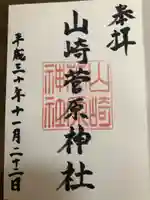 奉拝
山崎菅原神社
山崎
神社
平成三十年十一月二十二日